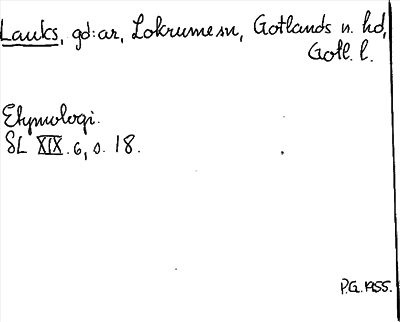 Lauks, gd:ar, Lokrume sn, Gotlands n. hd,
Gotl. l.
Etymologi.
SL XIX. 6, s. 18.
P.G. 1955.